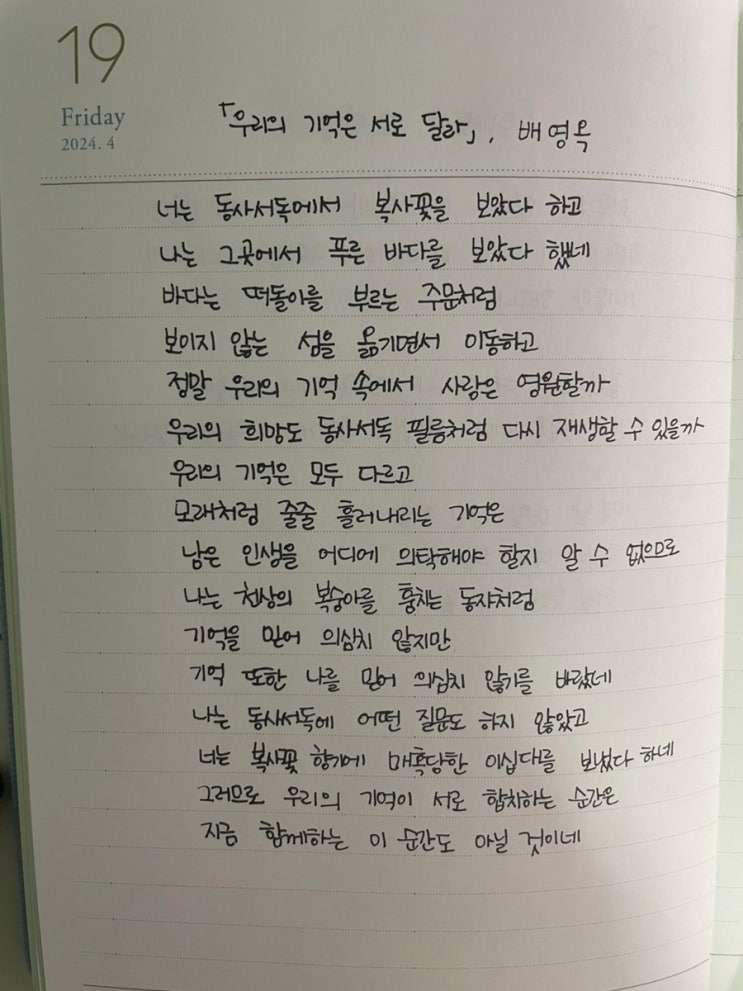 19
Friday
2024. 4
「우리의 기억은 서로 달라」, 배영옥
너는 동사서독에서 복사꽃을 보았다 하고
나는 그곳에서 푸른 바다를 보았다 했네
바다는 떠돌이를 부르는 주문처럼
보이지 않는 섬을 옮기면서 이동하고
정말 우리의 기억 속에서 사랑은 영원할까
우리의 희망도 동사서독 필름처럼 다시 재생할 수 있을까
우리의 기억은 모두 다르고
모래처럼 줄줄 흘러내리는 기억은
남은 인생을 어디에 의탁해야 할지 알 수 없으므로
나는 천상의 복숭아를 훔치는 동자처럼
기억을 믿어 의심치 않지만
기억 또한 나를 믿어 의심치 않기를 바랐네
나는 동사서독에 어떤 질문도 하지 않았고
너는 복사꽃 향기에 매혹당한 이십대를 보냈다 하네
그러므로 우리의 기억이 서로 합치하는 순간은
지금 함께하는 이 순간도 아닐 것이네